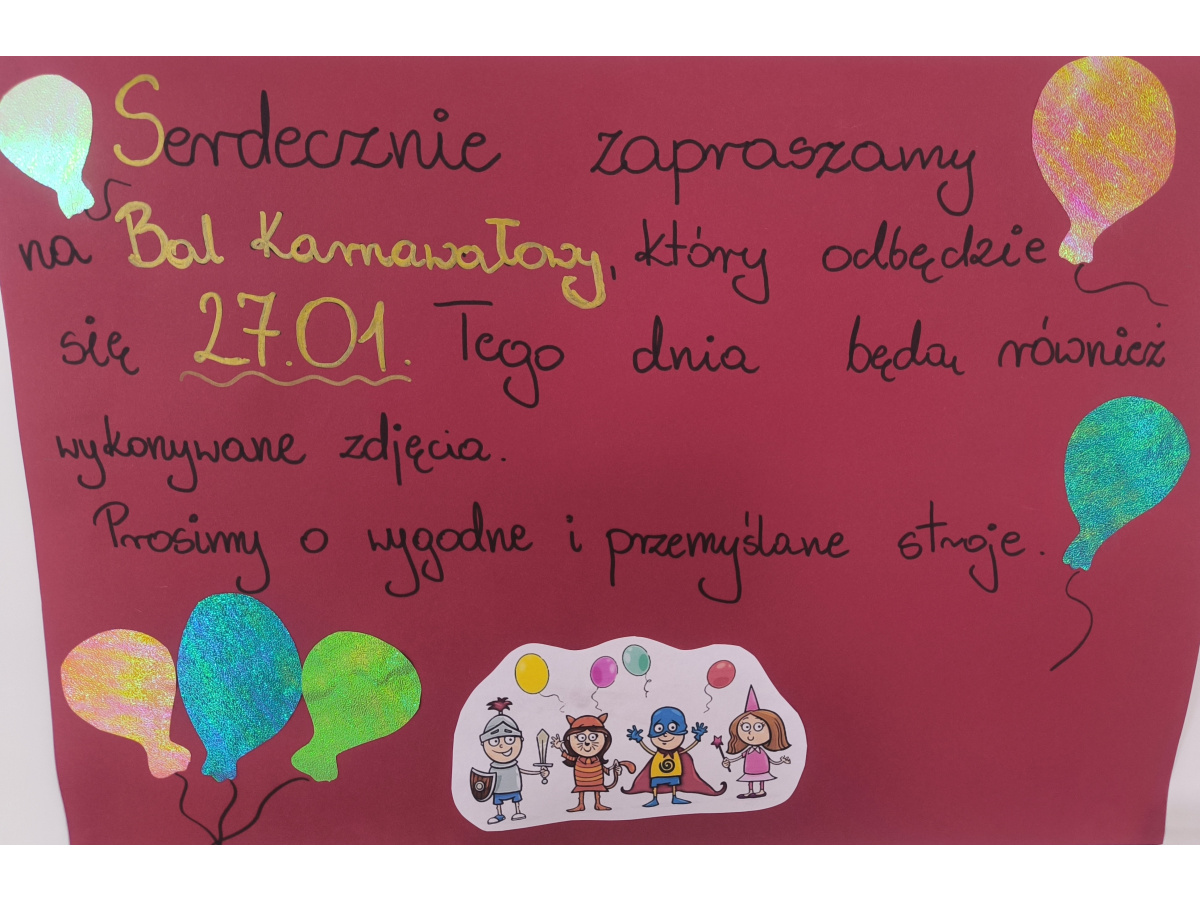 Serdecznie zapraszamy
na Bal Karnawałowy, który odbędzie
się 27.01. Tego dnia będą również
wykonywane zdjęcia.
Prosimy o wygodne i przemyślane stroje.